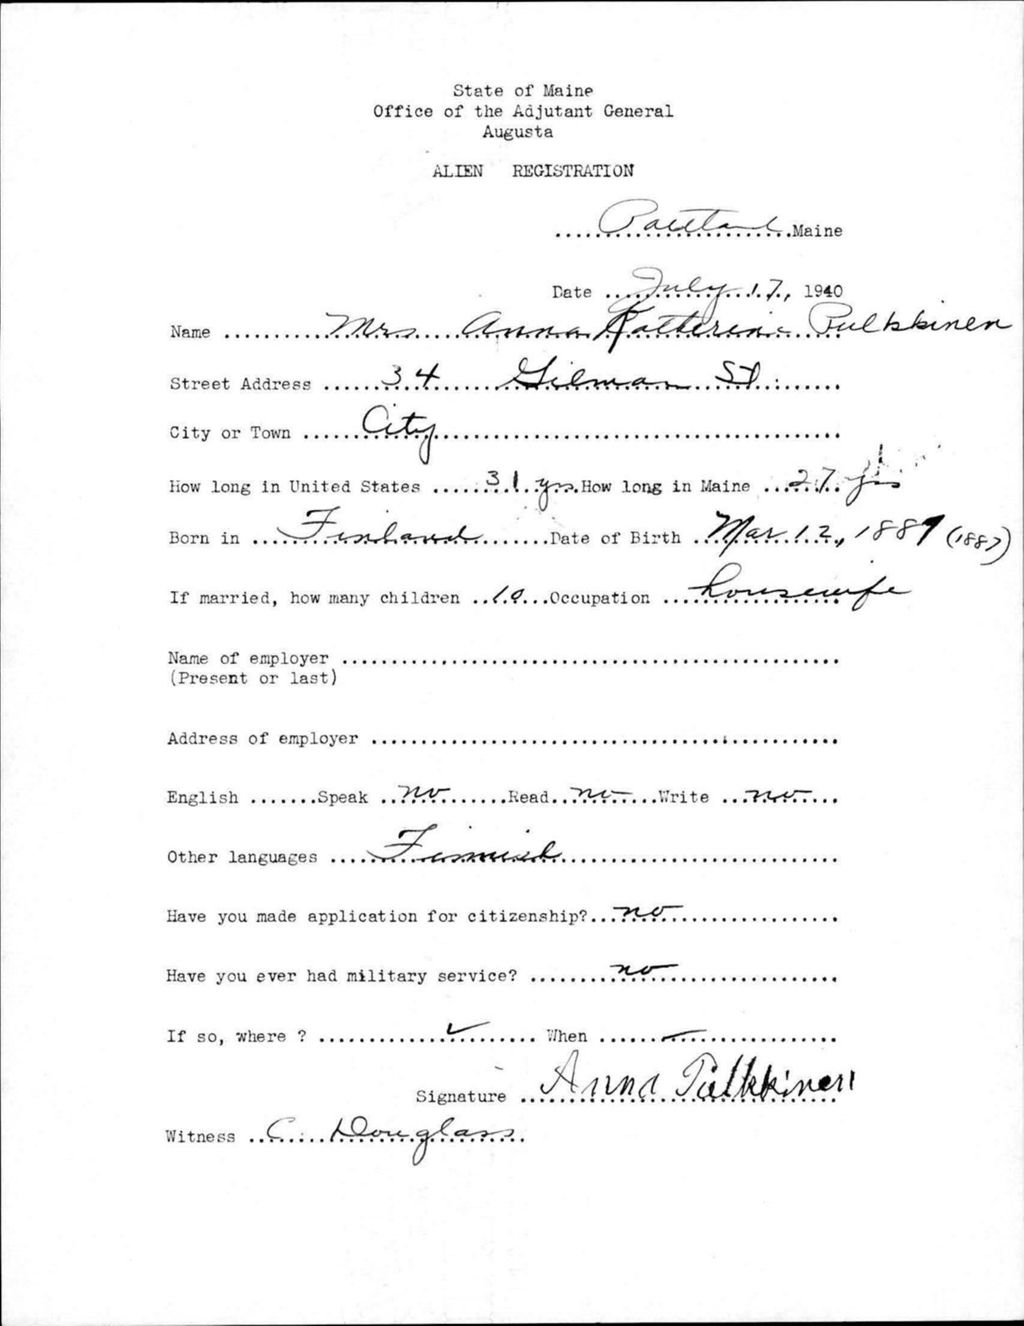 State of Maine
Office of the Adjutant General
Augusta
ALIEN REGISTRATION
Portland Maine
Date July 17, 1940
Name Mrs. Anna Katterine Pulkkinen
Street Address 34 Gilman St.
City or Town City
How long in United States 31 yrs. How long in Maine 27 yrs
Born in Finland Date of Birth Mar. 12, 1887 (1887)
If married, how many children 10 Occupation housewife
Name of employer
(Present or last)
Address of employer
English Speak no Read no Write no
Other languages Finnish
Have you made application for citizenship? no
Have you ever had military service? no
If so, where ? When
Signature Anna Pulkkinen
Witness C. Douglass